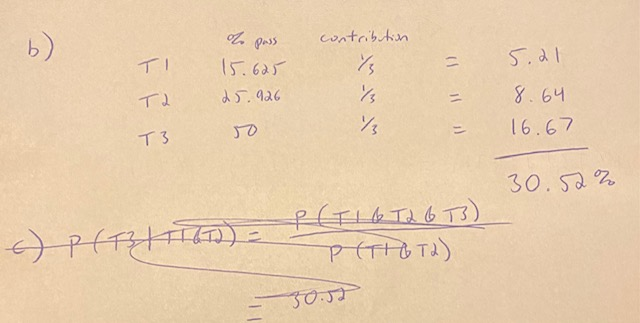 b)
% pass contribution
T1 15.625 1/3 = 5.21
T2 25.926 1/3 = 8.64
T3 50 1/3 = 16.67
30.52 %
c) P(T3 | T1&T2) = P(T1&T2&T3)
P(T1&T2)
= 30.52